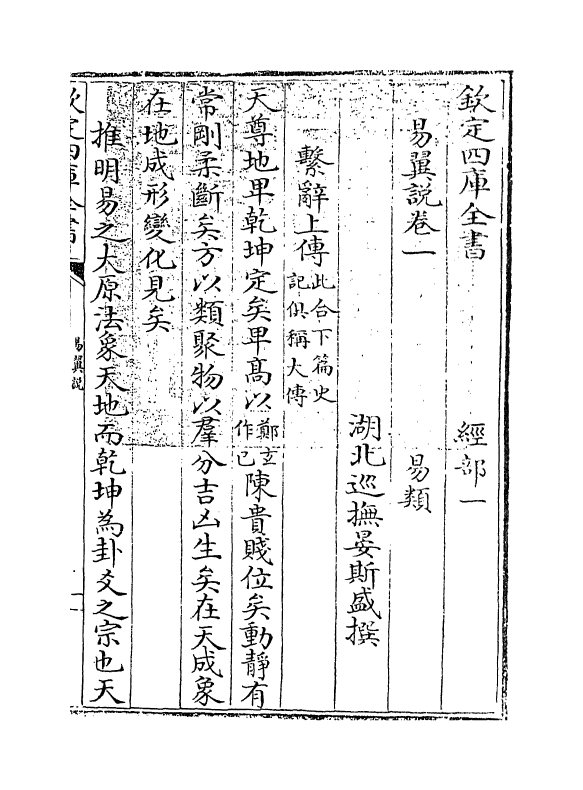 欽定四庫全書　經部一
易翼説卷一　易類
湖北巡撫晏斯盛撰
繫辭上傳此合下篇史記俱稱大傳
天尊地卑乾坤定矣卑髙以鄭𤣥作已陳貴賤位矣動靜有
常剛柔斷矣方以類聚物以羣分吉凶生矣在天成象
在地成形變化見矣
推明易之大原法象天地而乾坤為卦爻之宗也天
欽定四庫全書
易翼説
一